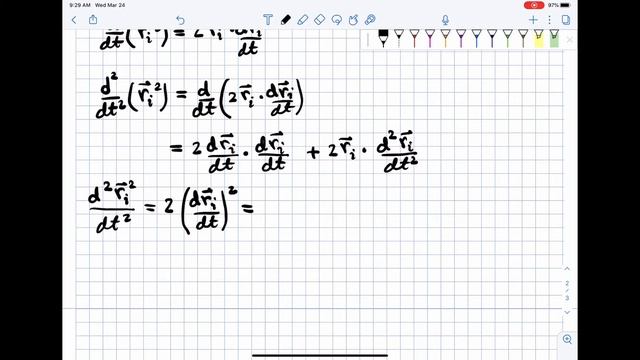 9:29 AM Wed Mar 24 97%
d/dt (r⃗ᵢ²) = 2 r⃗ᵢ · dr⃗ᵢ/dt
d²/dt² (r⃗ᵢ²) = d/dt (2 r⃗ᵢ · dr⃗ᵢ/dt)
= 2 dr⃗ᵢ/dt · dr⃗ᵢ/dt + 2 r⃗ᵢ · d²r⃗ᵢ/dt²
d²r⃗ᵢ²/dt² = 2 (dr⃗ᵢ/dt)² =
2
/
3